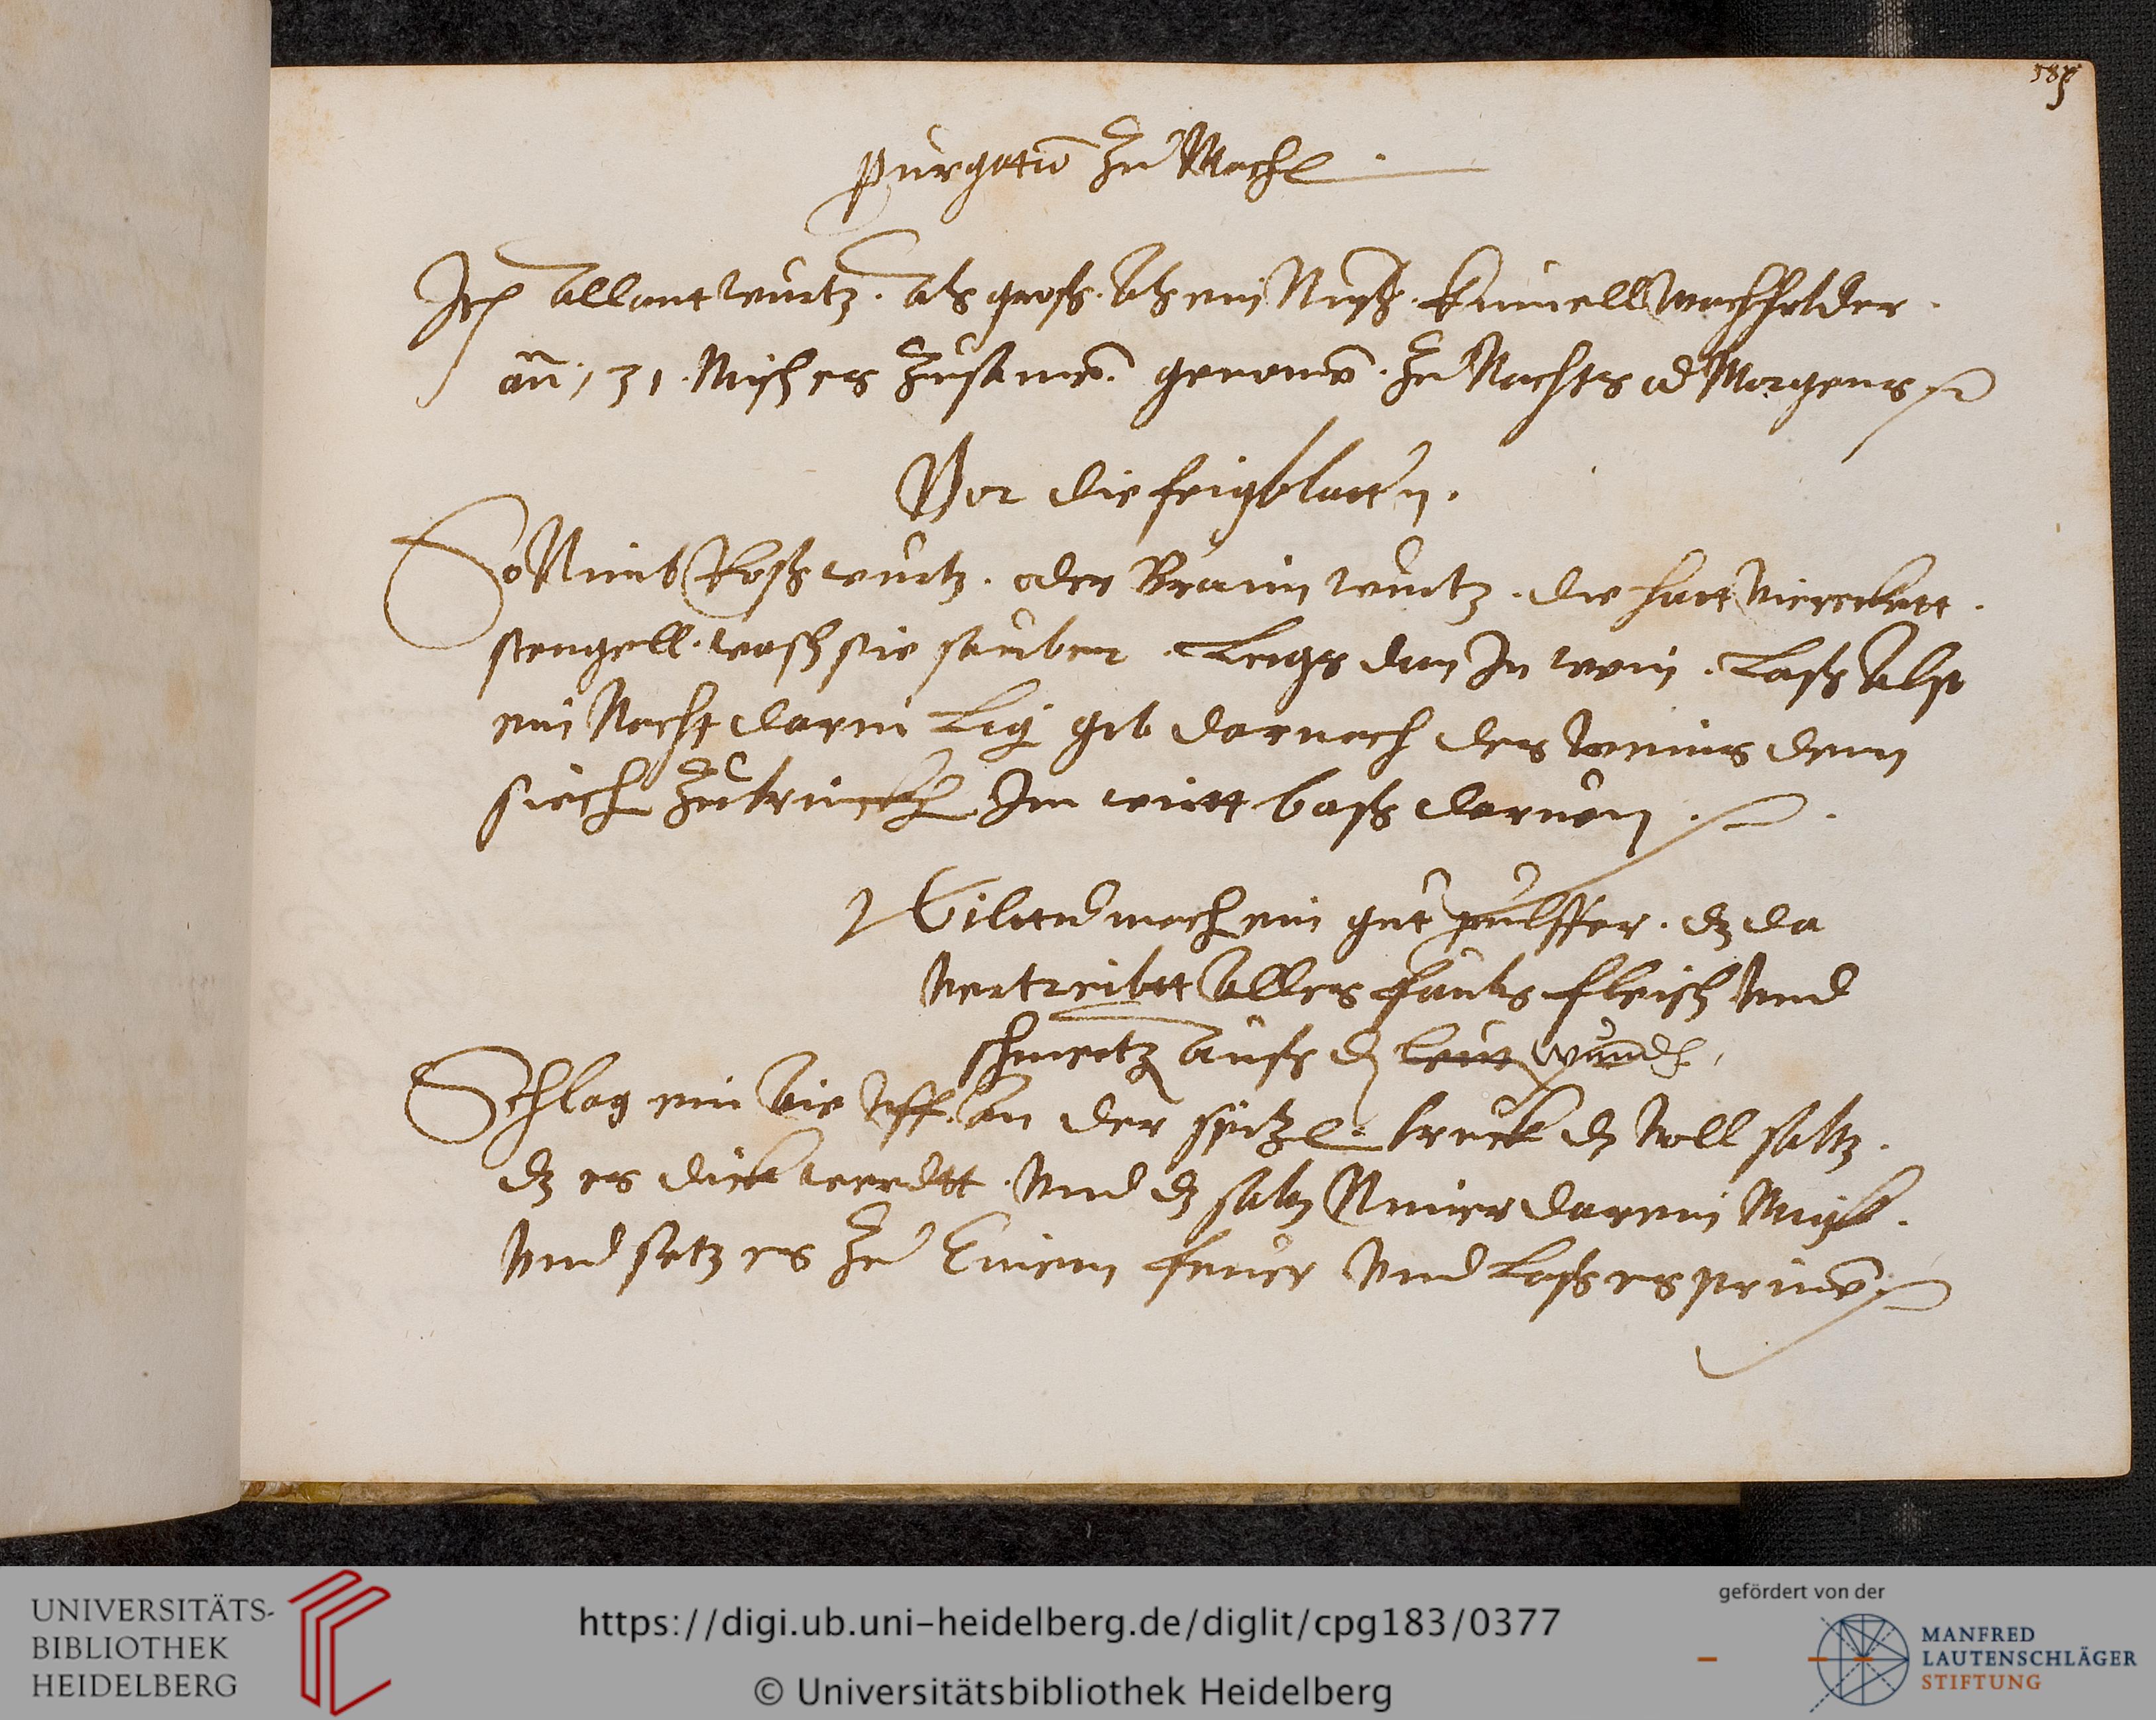 185
Purgatio Zu Machē
Jtē Allant wurtz . Als groß . Als ein Nuß . kümell wachholder .
an̄ / ʒ 1 . Misch es Zusamē . genomē . Zu Nachts od Morgens
Vor die feigblatt'n .
So Nimb Roß wurtz . oder Braun wurtz . die hatt Vierekett .
stengell . wasch sie sauber . Legs dan In wein . Laß Also
ein Nacht darin Lig gib darnach des weins dem
siech Zutrinckē Im wirtt baß daruon .
Wiltu mach ein gut pulffer . dz da
Vertreibtt Alles fauls fleisch Vnd
schmertz Auß d wundē ,
Schlag ein Aie Vff . An der spitze . truck dz Voll saltz .
dz es dick werdtt . Vnd dz saltz darein
Vnd setz es Zu Einem feuer Vnd Laß es prinē
UNIVERSITÄTS-
BIBLIOTHEK
HEIDELBERG
https://digi.ub.uni-heidelberg.de/diglit/cpg183/0377
© Universitätsbibliothek Heidelberg
gefördert von der
MANFRED
LAUTENSCHLÄGER
STIFTUNG